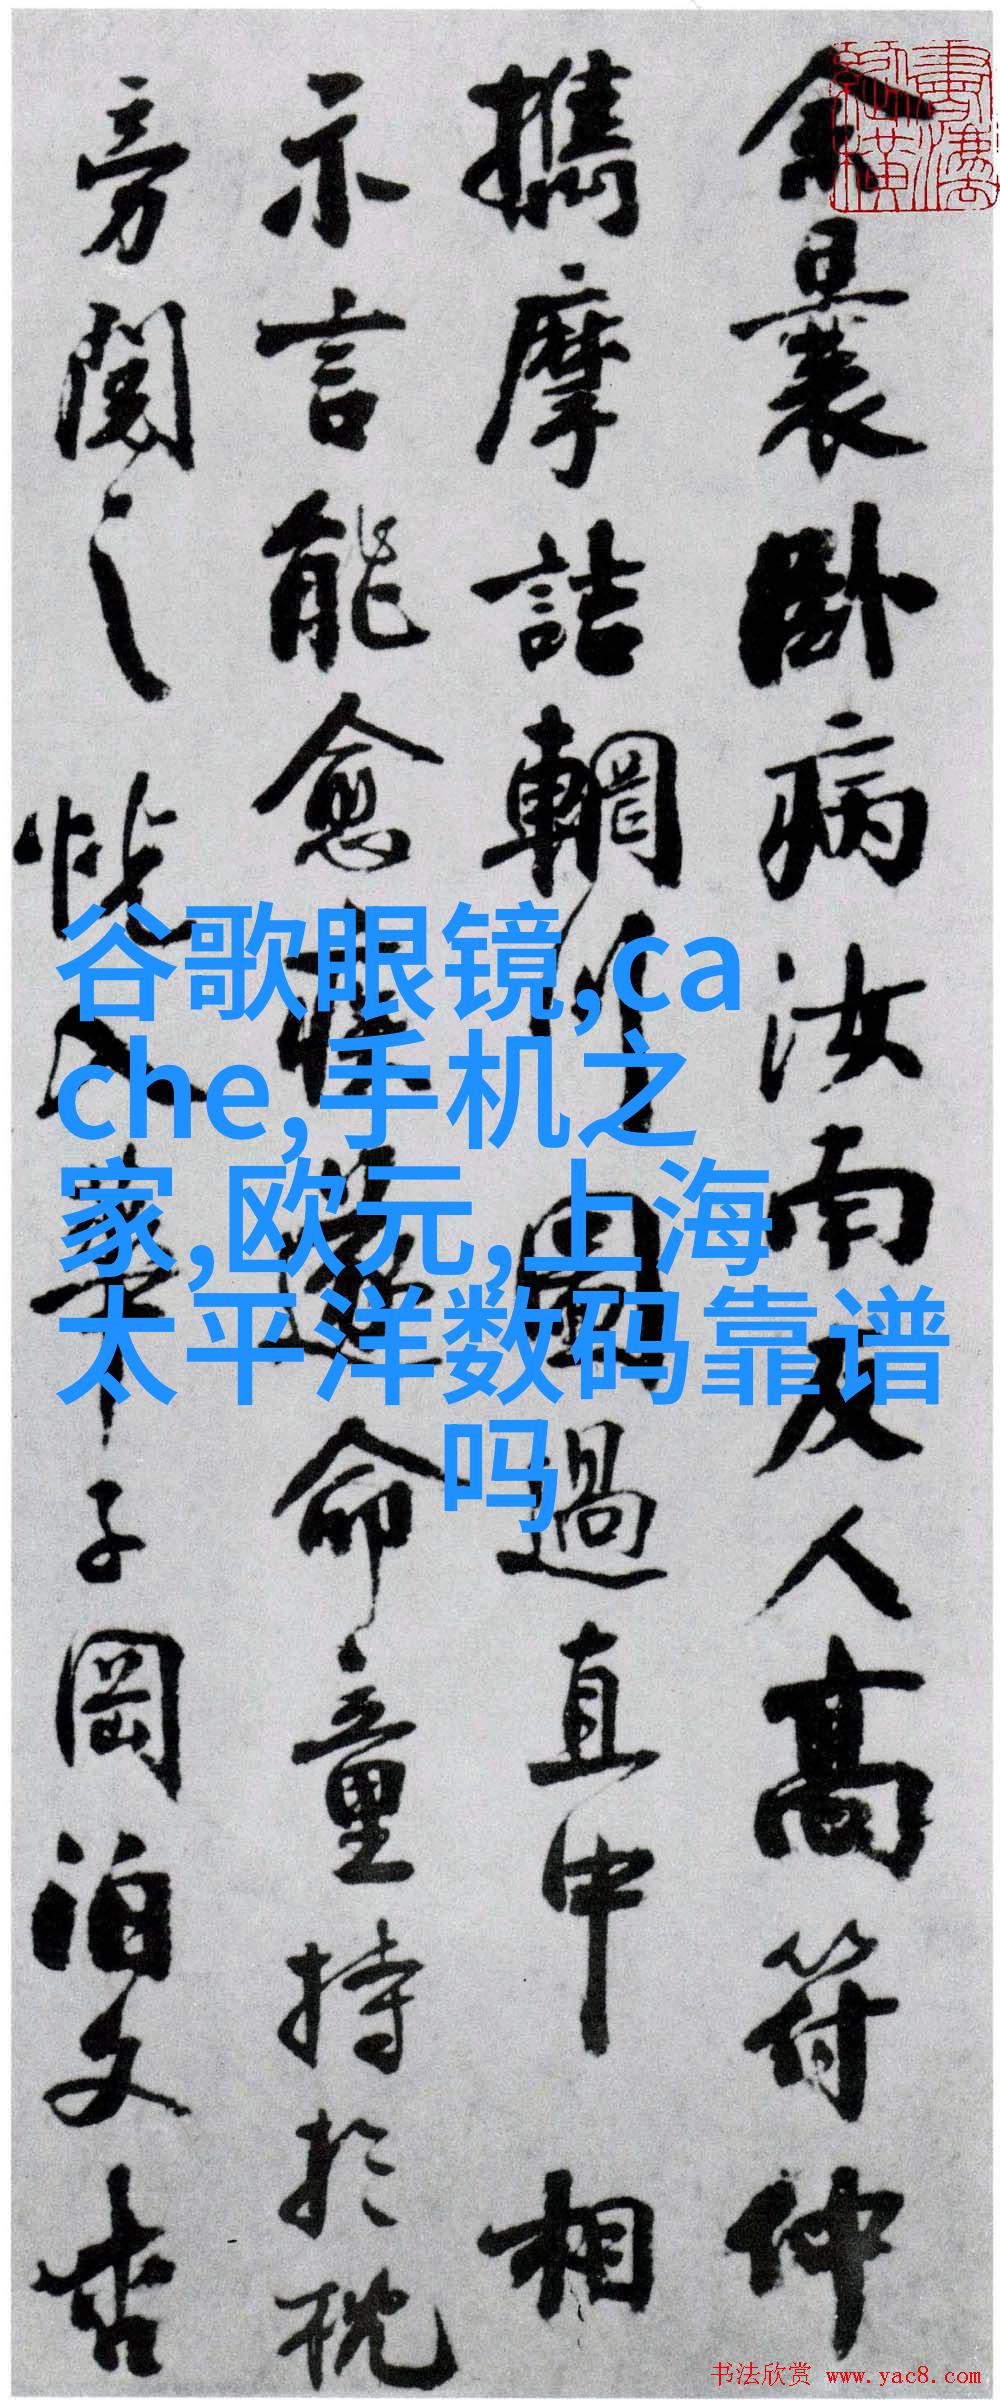 余曩卧病汝南友人高符仲
攜摩詰輞川圖過直中相
示言能愈疾遂命童持於枕
旁閱之恍入華子岡泊文杏
谷歌眼镜,ca
che,手机之
家,欧元,上海
太平洋数码靠谱
吗
书法欣赏 www.yac8.com